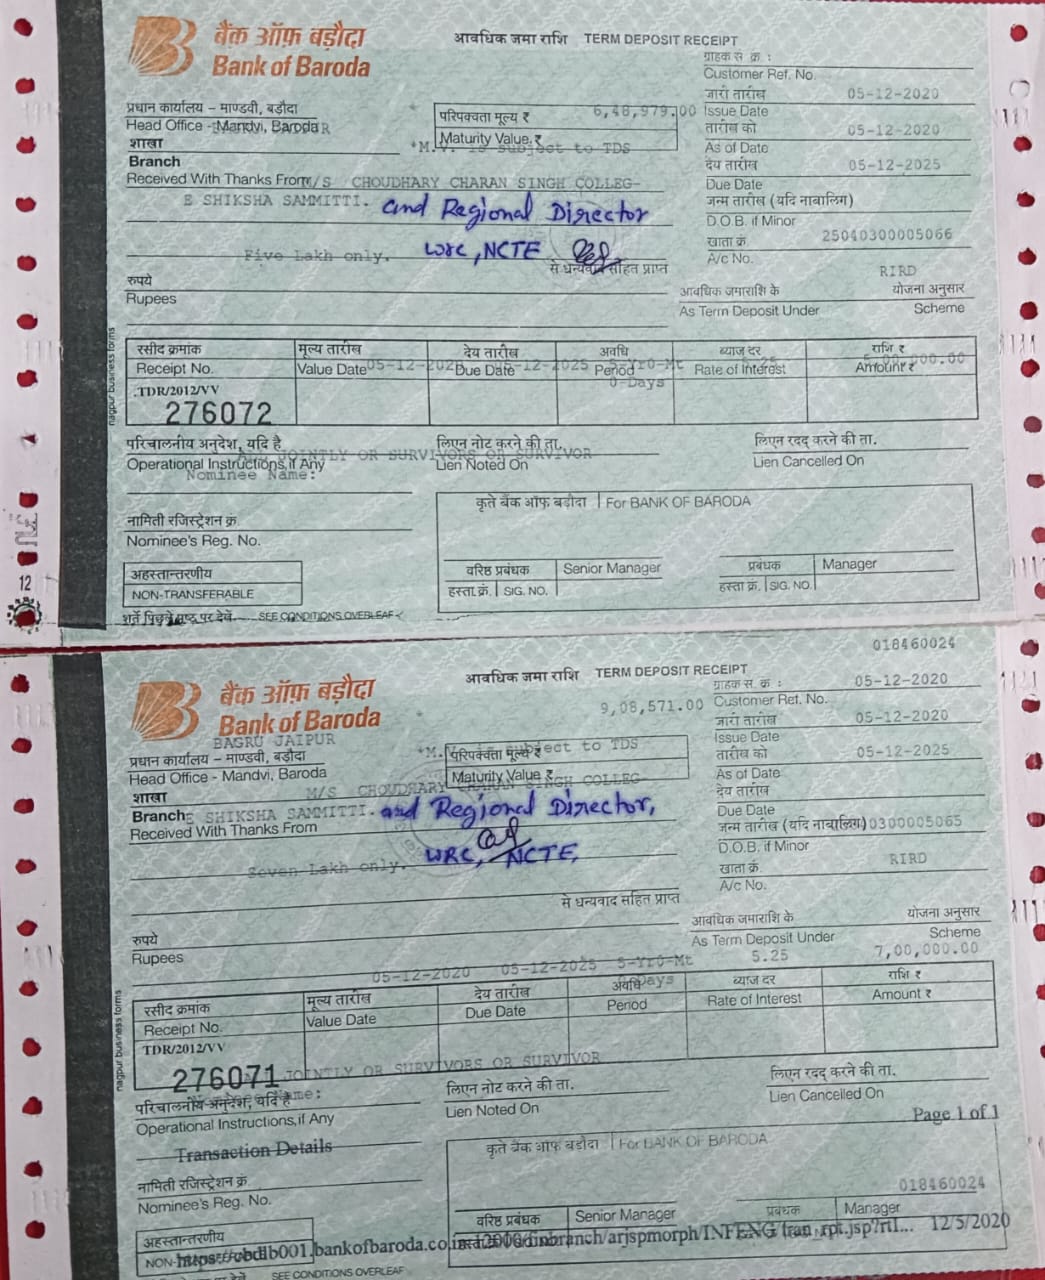 बैंक ऑफ़ बड़ौदा
Bank of Baroda
आवधिक जमा राशि TERM DEPOSIT RECEIPT
ग्राहक स. क्र. :
Customer Ref. No.
जारी तारीख 05-12-2020
Issue Date
तारीख को 05-12-2020
As of Date
देय तारीख 05-12-2025
Due Date
जन्म तारीख (यदि नाबालिग)
D.O.B. if Minor
खाता क्रं 25040300005066
A/c No.
RIRD
प्रधान कार्यालय – माण्डवी, बड़ौदा
Head Office - Mandvi, Baroda
शाखा
Branch
परिपक्वता मूल्य ₹ 6,48,979.00
Maturity Value ₹
*M.V. is subject to TDS
Received With Thanks From M/S CHOUDHARY CHARAN SINGH COLLEG-
E SHIKSHA SAMMITTI. and Regional Director
WRC, NCTE
Five Lakh only.
से धन्यवाद सहित प्राप्त
रुपये
Rupees
आवधिक जमाराशि के योजना अनुसार
As Term Deposit Under Scheme
रसीद क्रमांक मूल्य तारीख देय तारीख अवधि ब्याज दर राशि ₹
Receipt No. Value Date 05-12-2020 Due Date 05-12-2025 Period 5-Yr0-Mt Rate of Interest 5.25 Amount ₹ 5,00,000.00
0-Days
TDR/2012/VV
276072
परिचालनीय अनुदेश, यदि है लिएन नोट करने की ता. लिएन रदद् करने की ता.
JOINTLY OR SURVIVORS OR SURVIVOR
Operational Instructions, if Any Lien Noted On Lien Cancelled On
Nominee Name:
कृते बैंक ऑफ बड़ौदा For BANK OF BARODA
नामिती रजिस्ट्रेशन क्रं.
Nominee's Reg. No.
वरिष्ठ प्रबंधक Senior Manager प्रबंधक Manager
हस्ता. क्रं. SIG. NO. हस्ता क्रं. SIG. NO.
अहस्तान्तरणीय
NON-TRANSFERABLE
शर्तें पिछले पृष्ठ पर देखें SEE CONDITIONS OVERLEAF
nagpur business forms
12
018460024
बैंक ऑफ़ बड़ौदा
Bank of Baroda
आवधिक जमा राशि TERM DEPOSIT RECEIPT
ग्राहक स. क्र. : 05-12-2020
Customer Ref. No.
जारी तारीख 05-12-2020
Issue Date
तारीख को 05-12-2025
As of Date
देय तारीख
Due Date
जन्म तारीख (यदि नाबालिग) 0300005065
D.O.B. if Minor
खाता क्रं. RIRD
A/c No.
BAGRU JAIPUR
प्रधान कार्यालय – माण्डवी, बड़ौदा
Head Office - Mandvi, Baroda
शाखा
9,08,571.00
*M.V. is subject to TDS
परिपक्वता मूल्य ₹
Maturity Value ₹
M/S CHOUDHARY CHARAN SINGH COLLEG-
Branch E SHIKSHA SAMMITTI. and Regional Director,
Received With Thanks From
WRC, NCTE,
Seven Lakh only.
से धन्यवाद सहित प्राप्त
रुपये
Rupees
आवधिक जमाराशि के योजना अनुसार
As Term Deposit Under Scheme
05-12-2020 05-12-2025 5-Yr0-Mt 5.25 7,00,000.00
0-Days
रसीद क्रमांक मूल्य तारीख देय तारीख अवधि ब्याज दर राशि ₹
Receipt No. Value Date Due Date Period Rate of Interest Amount ₹
TDR/2012/VV
276071 JOINTLY OR SURVIVORS OR SURVIVOR
परिचालनीय अनुदेश, यदि है लिएन नोट करने की ता. लिएन रदद् करने की ता.
Operational Instructions, if Any Lien Noted On Lien Cancelled On
Page 1 of 1
Transaction Details
कृते बैंक ऑफ बड़ौदा For BANK OF BARODA
नामिती रजिस्ट्रेशन क्रं.
Nominee's Reg. No.
018460024
वरिष्ठ प्रबंधक Senior Manager प्रबंधक Manager
अहस्तान्तरणीय
12/5/2020
SEE CONDITIONS OVERLEAF
nagpur business forms